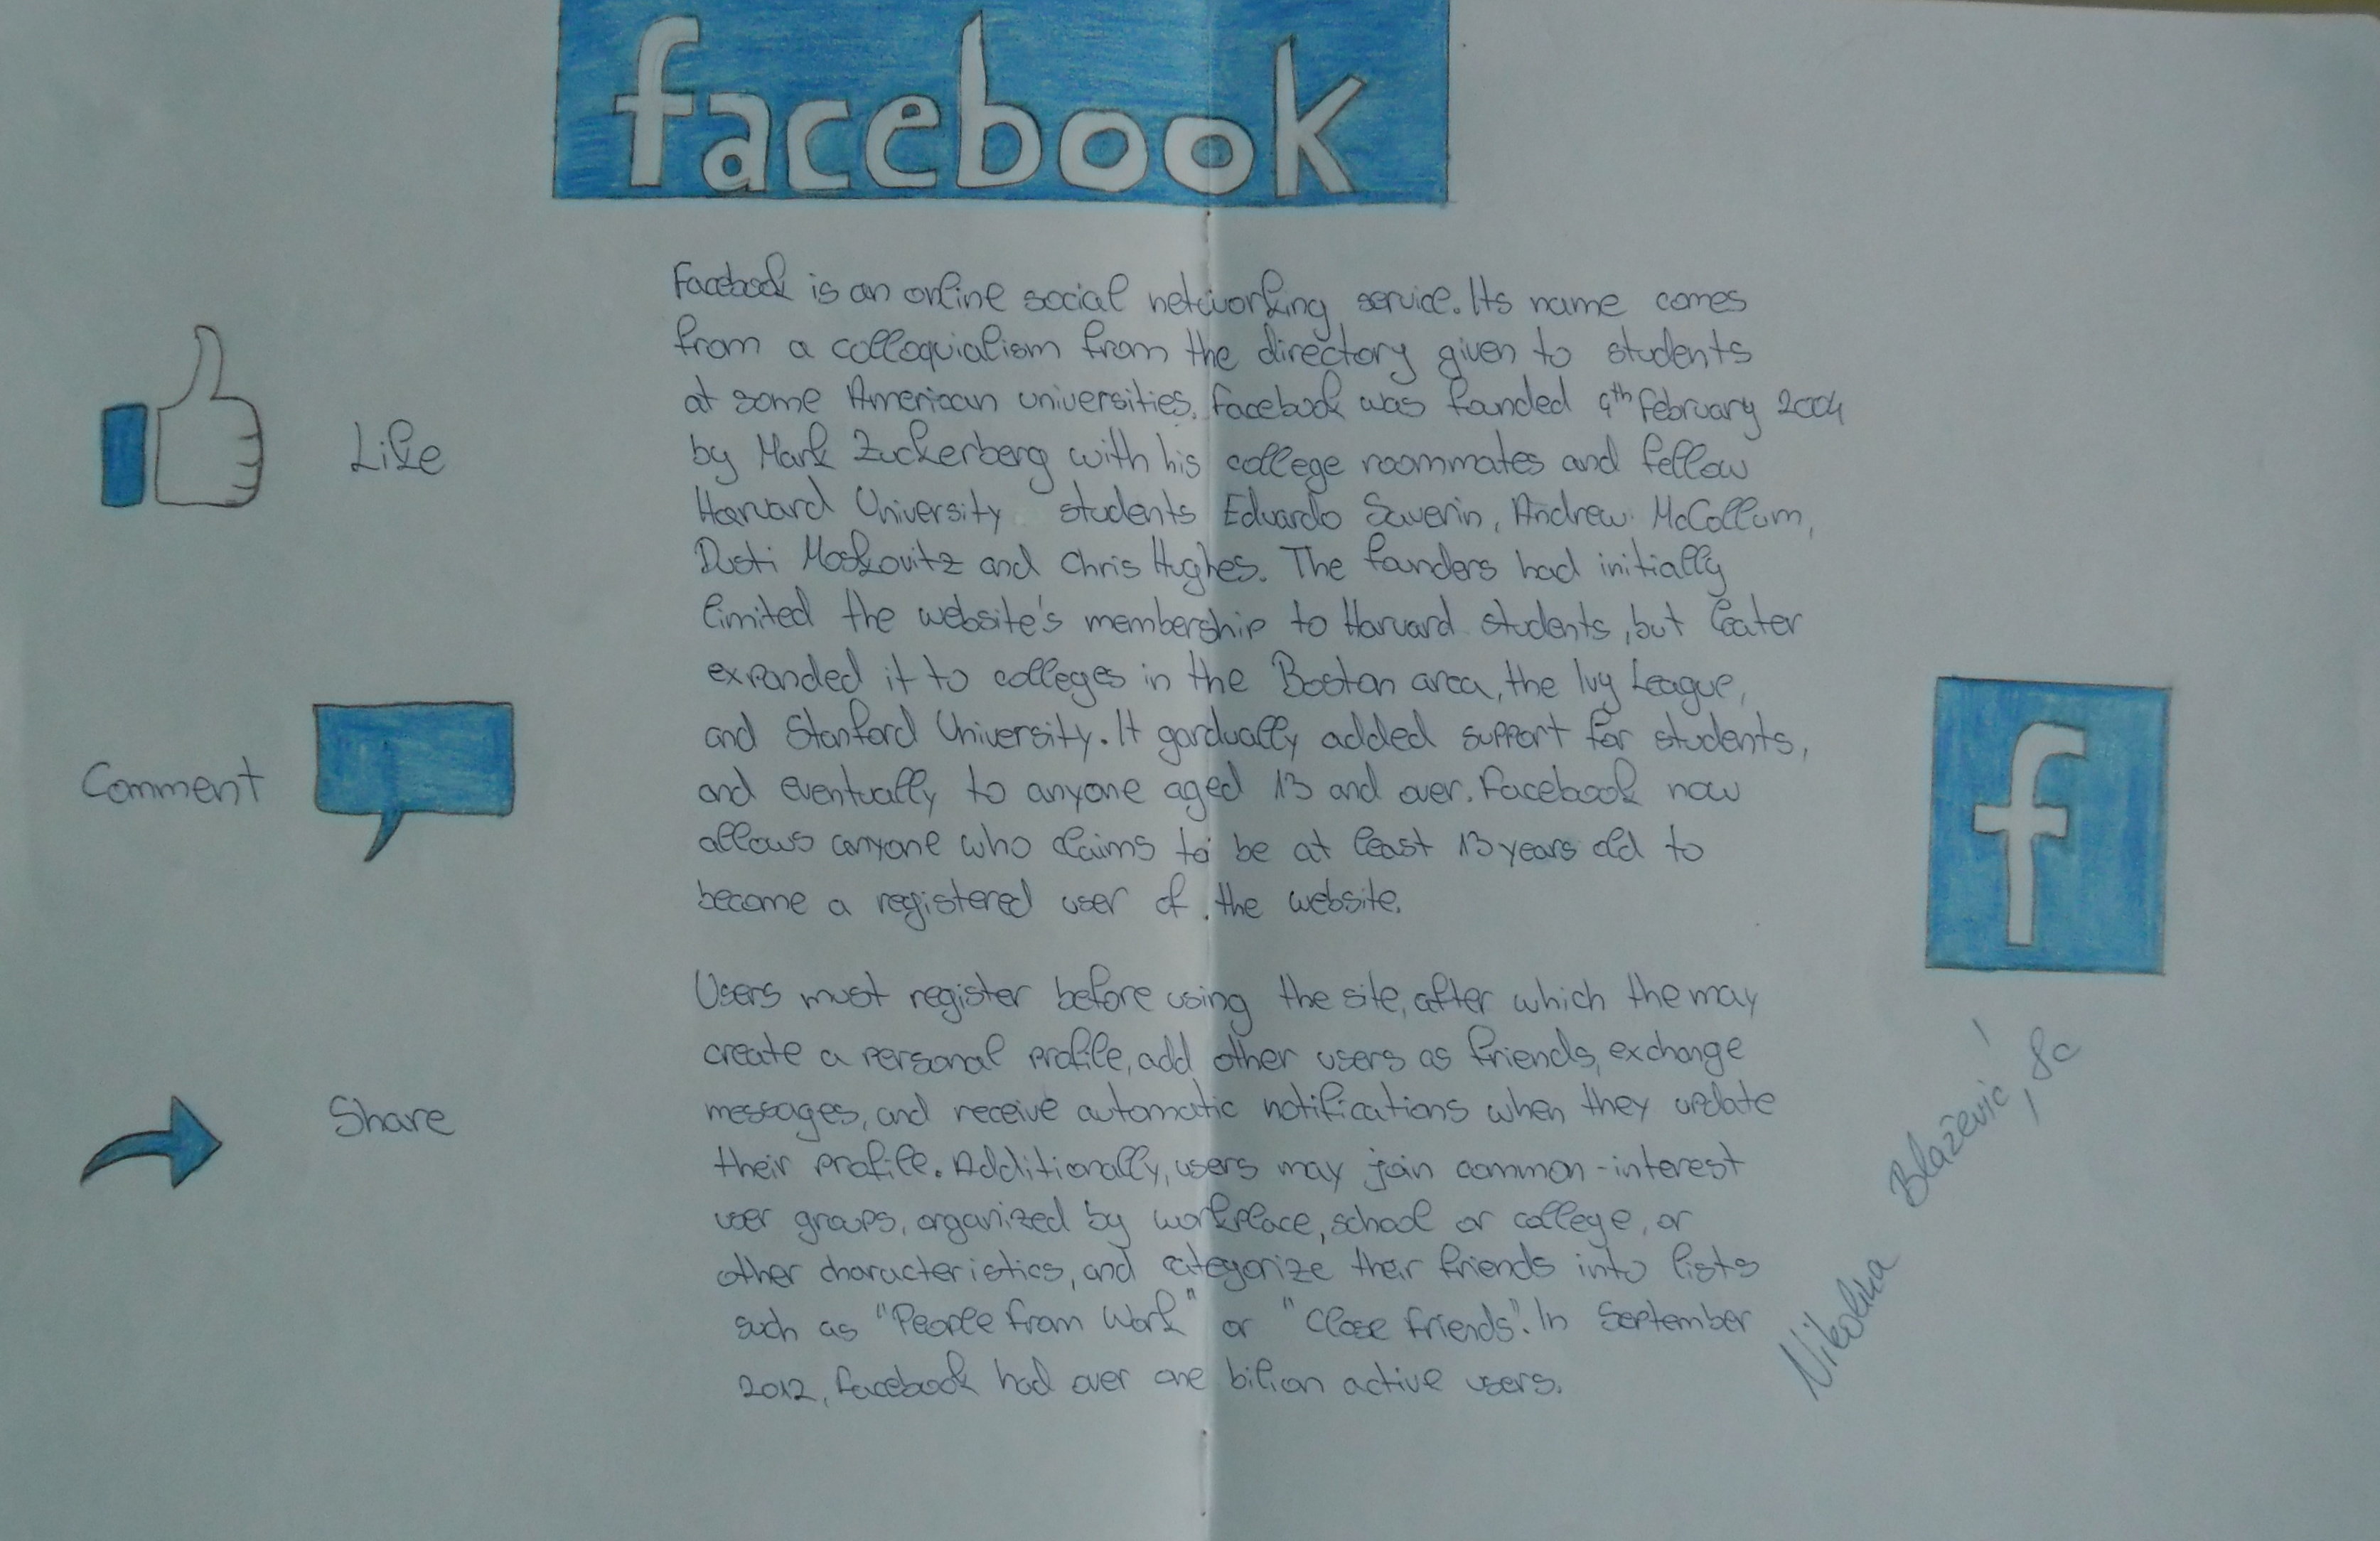 facebook
Facebook is an online social networking service. Its name comes
from a colloquialism from the directory given to students
at some American universities. Facebook was founded 4th February 2004
by Mark Zuckerberg with his college roommates and fellow
Harvard University students Eduardo Saverin, Andrew McCollum,
Dusti Moskovitz and Chris Hughes. The founders had initially
limited the website's membership to Harvard students, but leater
expanded it to colleges in the Boston area, the Ivy League,
and Stanford University. It gardually added support for students,
and eventually to anyone aged 13 and over. Facebook now
allows anyone who claims to be at least 13 years old to
become a registered user of the website.
Users must register before using the site, after which the may
create a personal profile, add other users as friends, exchange
messages, and receive automatic notifications when they update
their profile. Additionally, users may join common-interest
user groups, organized by workplace, school or college, or
other characteristics, and categorize their friends into lists
such as "People from Work" or "Close Friends". In September
2012, Facebook had over one bilion active users.
Like
Comment
Share
f
Nikolina Blažević, 8c